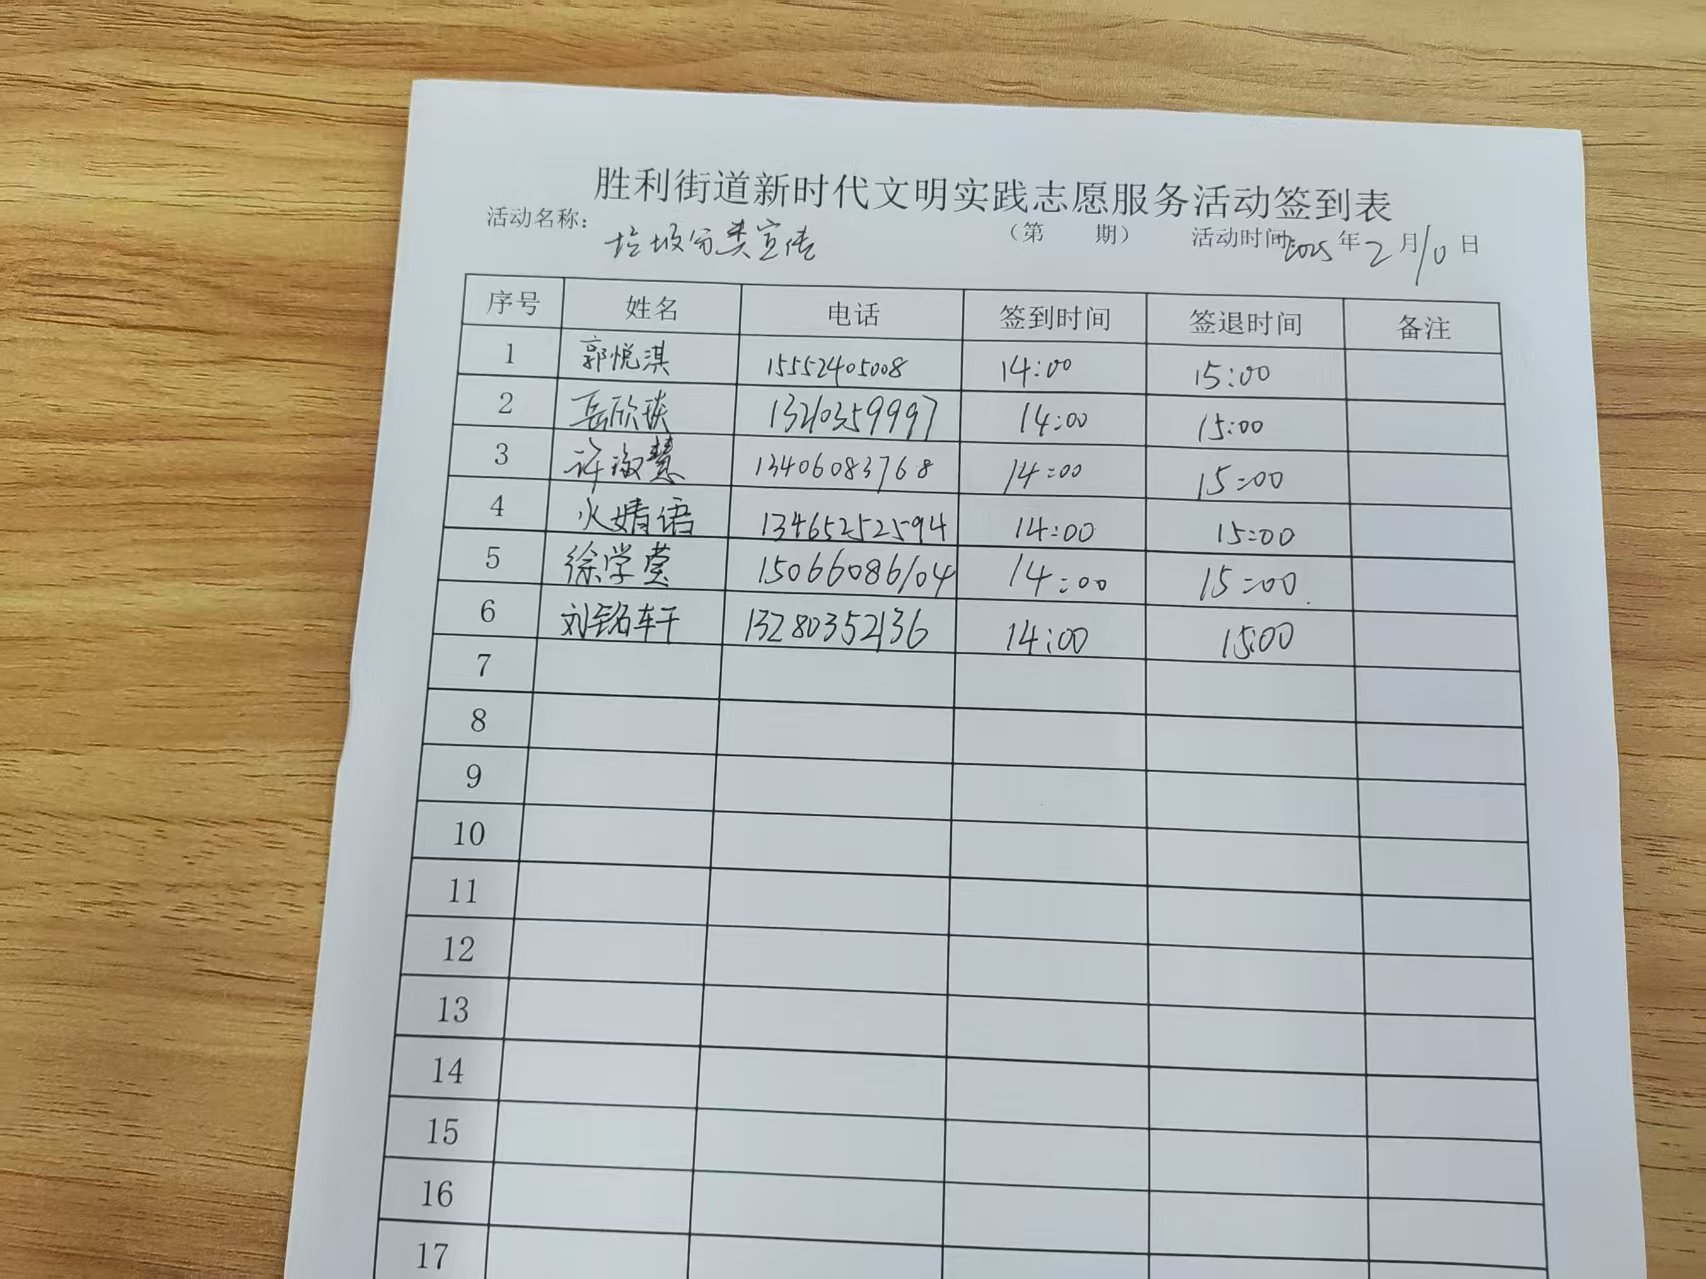 胜利街道新时代文明实践志愿服务活动签到表
活动名称: 垃圾分类宣传 (第 期) 活动时间: 2025 年 2 月 10 日
序号 姓名 电话 签到时间 签退时间 备注
1 郭悦淇 15552405008 14:00 15:00
2 岳欣琰 13210359997 14:00 15:00
3 许淑慧 13406083768 14:00 15:00
4 火婧语 13465252594 14:00 15:00
5 徐学莹 15066086104 14:00 15:00
6 刘铭轩 13280352136 14:00 15:00
7
8
9
10
11
12
13
14
15
16
17